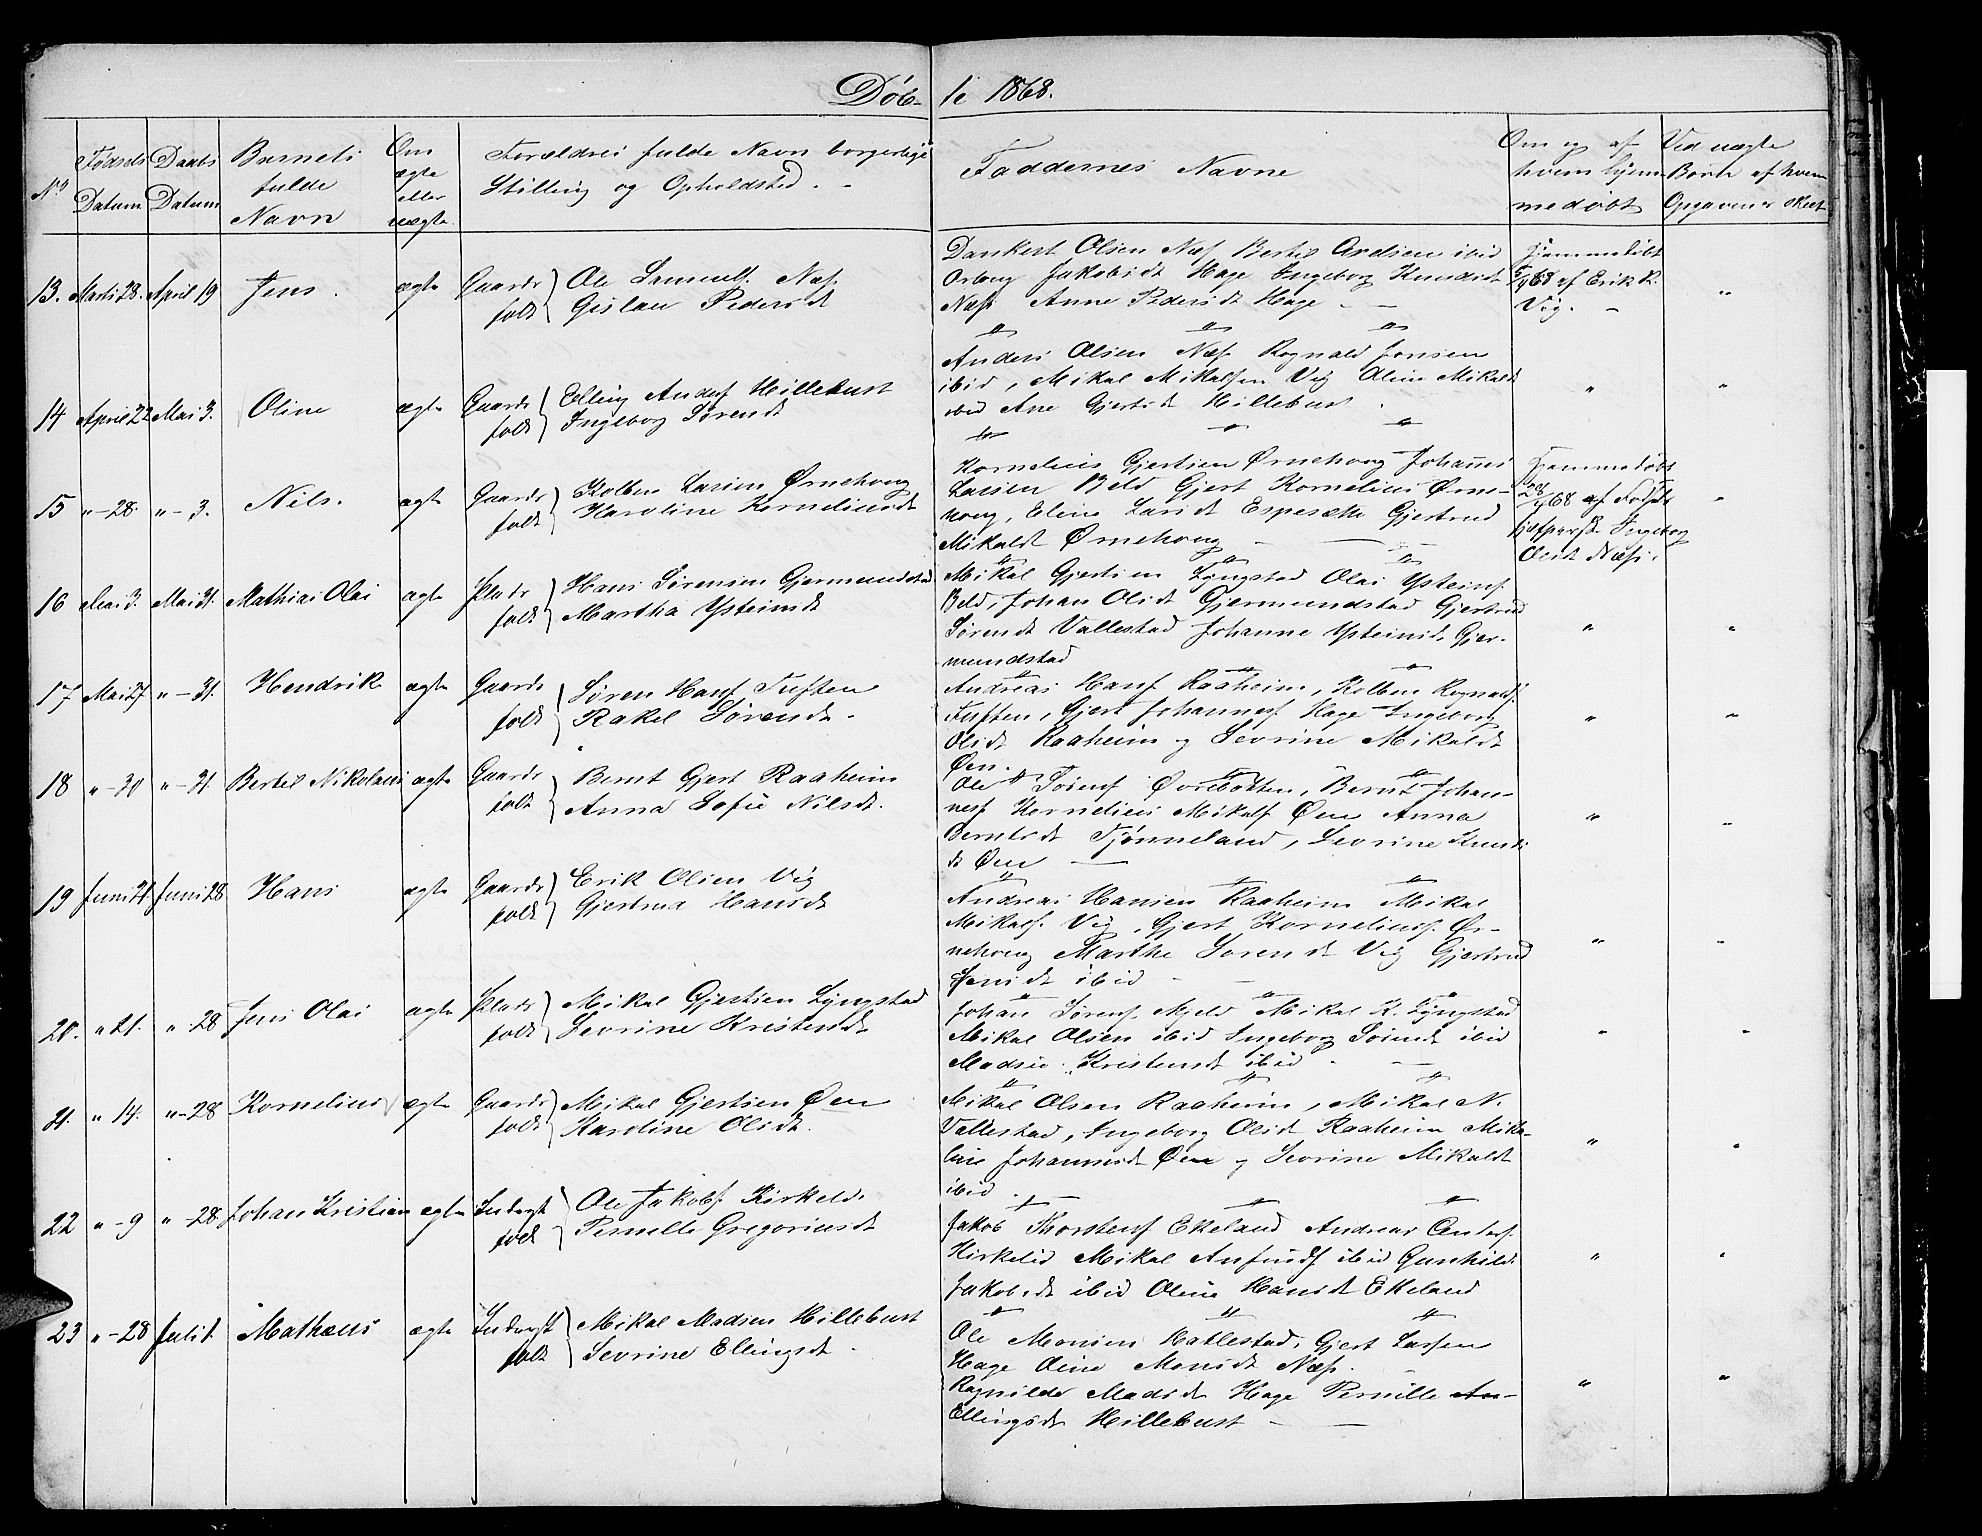 Døb- te 1868.
No Fødsels Datum Daabs Datum Barnets fulde Navn Om ægte eller uægte Forældres fulde Navn borgerlige Stilling og Opholdsted. Faddernes Navne Om og af hvem hjemmedøbt Ved uægte Børn af hvem Opgaven er skeet
13. Marts 28. April 19 Jens. ægte Gaardsfolk Ole Samuels. Næs.
Gislau Pedersdt
Dankert Olsen Næs Bertil Axelsen ibid
Jakobsdt Hage Ingeborg Knudsdt
Næs Anne Pedersdt Hage
Hjemmedøbt
68 af Erik
Vig. "
14 April 22 Mai 3. Oline ægte Gaardsfolk Elling Anders Hillebust
Ingeborg Sørensdt
Anders Olsen Næs Rognald Jonsen
ibid, Mikal Mikalsen Vig Oline Mikalsdt
ibid Ane Gjertsdt Hillebust. " "
15 "-28. "-3. Nils. ægte Gaardsfolk Kolben Larsen Ørnehoug
Karoline Korneliusdt
Kornelius Gjertsen Ørnehoug Johannes
Larsen Beld Gjert Kornelius Ørne-
houg, Eline Larsdt Espesætte Gjertrud
Mikalsdt Ørnehoug
Hjemmedøbt
68 af
Ingeborg
Olsdt Næs. "
16 Mai 3. Mai 31. Mathias Olai ægte Pladsfolk Hans Sørensen Gjermundstad
Martha Ysteinsdt
Mikal Gjertsen Lyngstad Olai Ysteins.
Beld, Johan Olsdt Gjermundstad Gjertrud
Sørensdt Vallestad Johanne Ysteinsdt Gjer-
mundstad " "
17 Mai 27 "-31. Hendrik ægte Gaardsfolk Søren Hans. Tuften
Rakel Sørensdt.
Andreas Hans. Raaheim, Kolben Rognalds.
Tuften, Gjert Johannes. Hage Ingeborg
Olsdt Raaheim og Sevrine Mikalsdt
Øen. " "
18 "-30 "-31. Bertel Nikolausi ægte Gaardsfolk Bernt Gjert Raaheim
Anna Sofie Nilsdt.
Ole Sørens. Øvrebotten, Bernt Johan-
nes. Kornelius Mikals. Øen Anna
Berntsdt Tjønneland, Sevrine Knuds
dt Øen " "
19 Juni 21. Juni 28 Hans ægte Gaardsfolk Erik Olsen Vig
Gjertrud Hansdt
Andreas Hansen Raaheim Mikal
Mikals. Vig, Gjert Kornelius. Ør-
nehoug Marthe Sørensdt Vig Gjertrud
Jensdt ibid " "
20. " 21. "-28 Jens Olai ægte Pladsfolk Mikal Gjertsen Lyngstad
Sevrine Kristensdt
Johan Sørens. Mjeld Mikal K. Lyngstad
Mikal Olsen ibid Ingeborg Sørensdt ibid
Madsie Kristensdt ibid. " "
21. " 14. "-28 Kornelius ægte Gaardsfolk Mikal Gjertsen Øen
Karoline Olsdt.
Mikal Olsen Raaheim, Mikal N.
Vallestad, Ingeborg Olsdt Raaheim Mika-
line Johannesdt Øen og Sevrine Mikalsdt
ibid. " "
22 "-9 "-28 Johan Kristian ægte Inderstfolk Ole Jakobs. Kirkelid.
Pernille Gregoriusdt
Jakob Thorstens. Ekeland Andreas Anders.
Kirkelid Mikal Anfinds. ibid Gunhild
Jakobsdt ibid Oline Hansdt Ekeland " "
23 "-28 Juli 1. Mathæus ægte Inderstfolk Mikal Madsen Hillebust
Sevrine Ellingsdt
Ole Monsen Hatlestad, Gjert Larsen
Hage Oline Monsdt Næs.
Ragnilde Madsdt Hage Pernille An-
Ellingsdt Hillebust " "